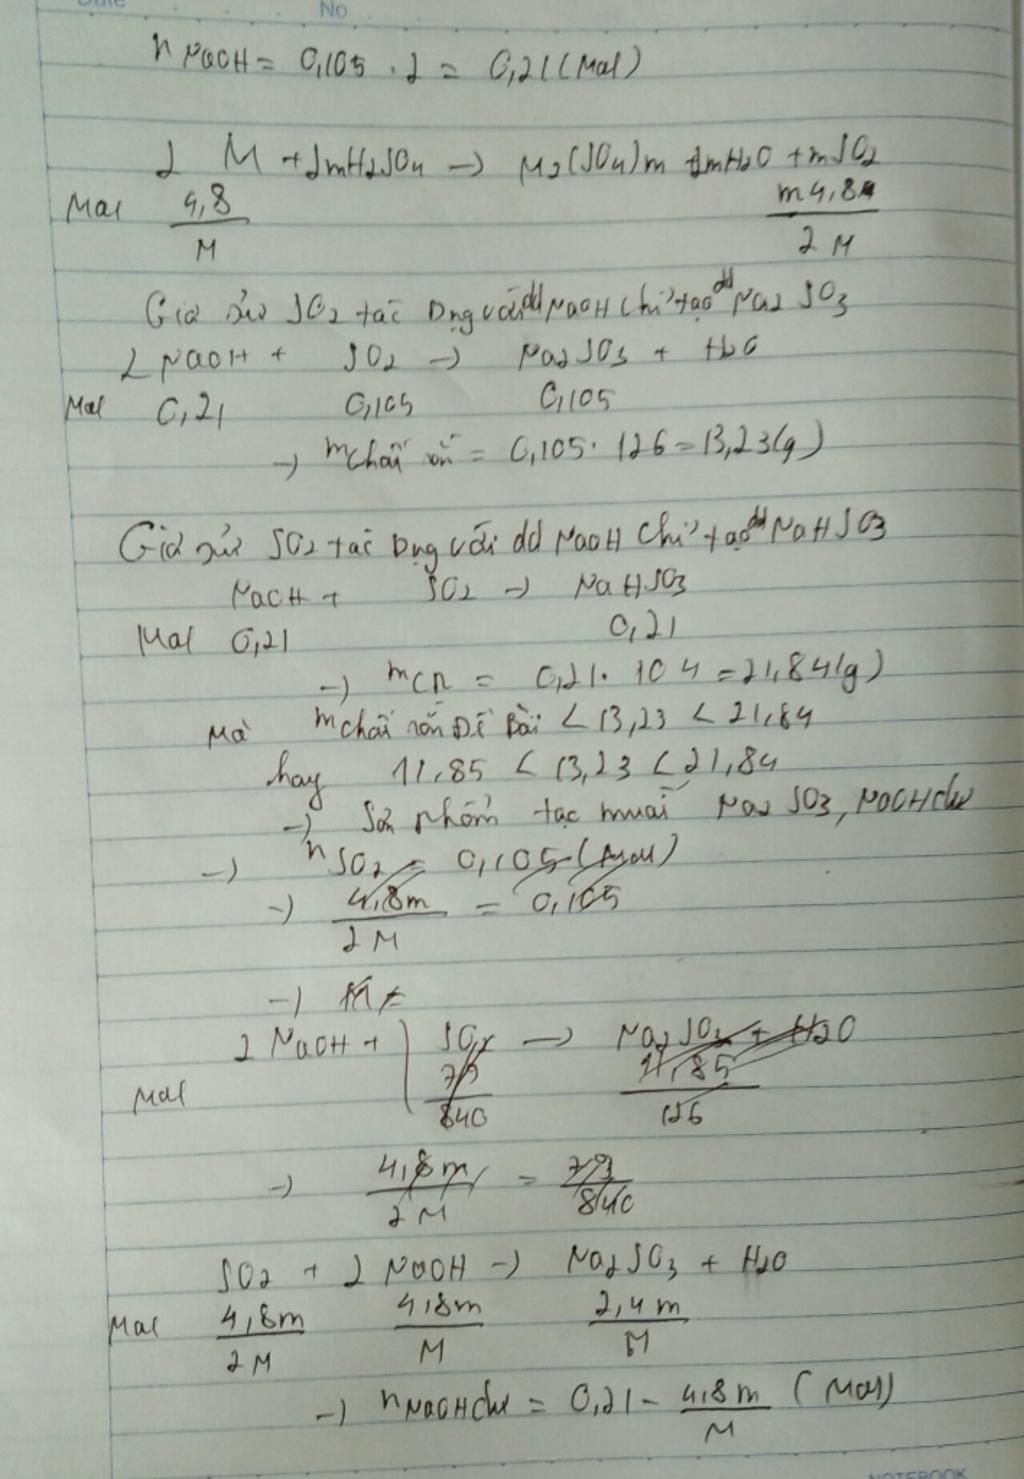 Date No
n NaOH = 0,105 . 2 = 0,21 (Mol)
2 M + 2mH2SO4 -> M2(SO4)m + 2mH2O + mSO2
Mol 4,8/M m4,8/2M
Giả sử SO2 tác Dụng với dd NaOH chỉ tạo dd Na2SO3
2 NaOH + SO2 -> Na2SO3 + H2O
Mol 0,21 0,105 0,105
-> m chất rắn = 0,105 . 126 = 13,23(g)
Giả sử SO2 tác Dụng với dd NaOH chỉ tạo dd NaHSO3
NaOH + SO2 -> NaHSO3
Mol 0,21 0,21
-> mCR = 0,21 . 104 = 21,84(g)
Mà m chất rắn Đề Bài < 13,23 < 21,84
hay 11,85 < 13,23 < 21,84
-> Sản phẩm tạo muối Na2SO3, NaOH dư
-> n SO2 = 0,105 (Mol)
-> 4,8m/2M = 0,105
-> M =
2 NaOH + SO2 -> Na2SO3 + H2O
Mol 79/840 11,85/126
-> 4,8m/2M = 79/840
SO2 + 2 NaOH -> Na2SO3 + H2O
Mol 4,8m/2M 4,8m/M 2,4m/M
-> n NaOH dư = 0,21 - 4,8m/M (Mol)
NOTEBOOK